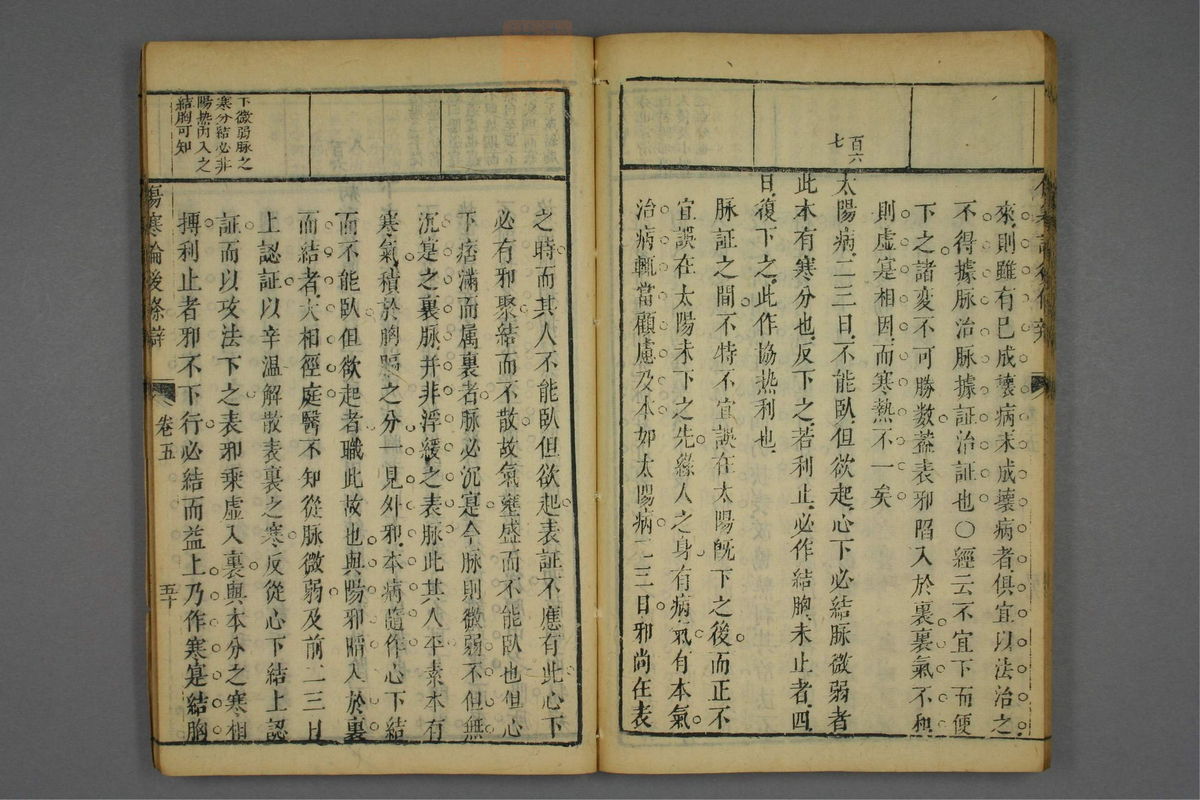 百六
七
來則雖有已成壞病未成壞病者俱宜以法治之
不得據脉治脉據証治証也〇經云不宜下而便
下之諸變不可勝數葢表邪陷入於裏裏氣不和
則虛寔相因而寒熱不一矣
太陽病二三日不能臥但欲起心下必結脉微弱者
此本有寒分也反下之若利止必作結胸未止者四
日復下之此作協熱利也
脉証之間不特不宜誤在太陽旣下之後而正不
宜誤在太陽未下之先緣人之身有病氣有本氣
治病輒當顧慮及本如太陽病二三日邪尚在表
下微弱脉之
寒分結必非
陽热内入之
結胸可知
之時而其人不能臥但欲起表証不應有此心下
必有邪聚結而不散故氣壅盛而不能臥也但心
下痞滿而属裏者脉必沉寔今脉則微弱不但無
沉寔之裏脉并非浮緩之表脉此其人平素本有
寒氣積於胸膈之分一見外邪本病隨作心下結
而不能臥但欲起者職此故也與陽邪陷入於裏
而結者大相徑庭醫不知從脉微弱及前二三日
上認証以辛温解散表裏之寒反從心下結上認
証而以攻法下之表邪乘虛入裏與本分之寒相
摶利止者邪不下行必結而益上乃作寒寔結胸
傷寒論後條辯
卷五
五十